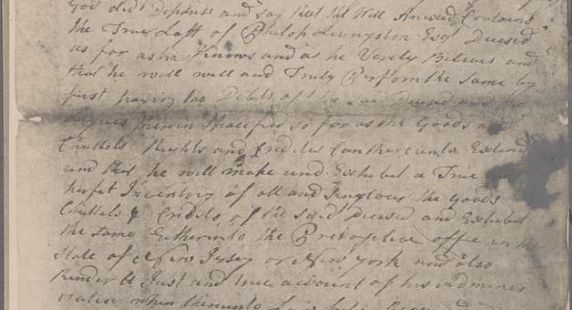 God did Depose and say that the Will Annexed Contains
the True Last of Philip Livingston Esqr Decesed
as far as he Knows and as he Verely Belives and
that he will well and Truly Perform the Same by
first paying the Debts of the Decesed and the
therein Specified so far as the Goods and
Chattels Rights and Credites Can thereunto Extend
and that he will make and Exhibit a True
Inventory of all and Singlous the Goods
Chattels & Credits of the said Decesed and Exhibit
the Same Eatherinto the office in the
State of New Jersey or New York and also
Render A Just and true account of his
when thereunto